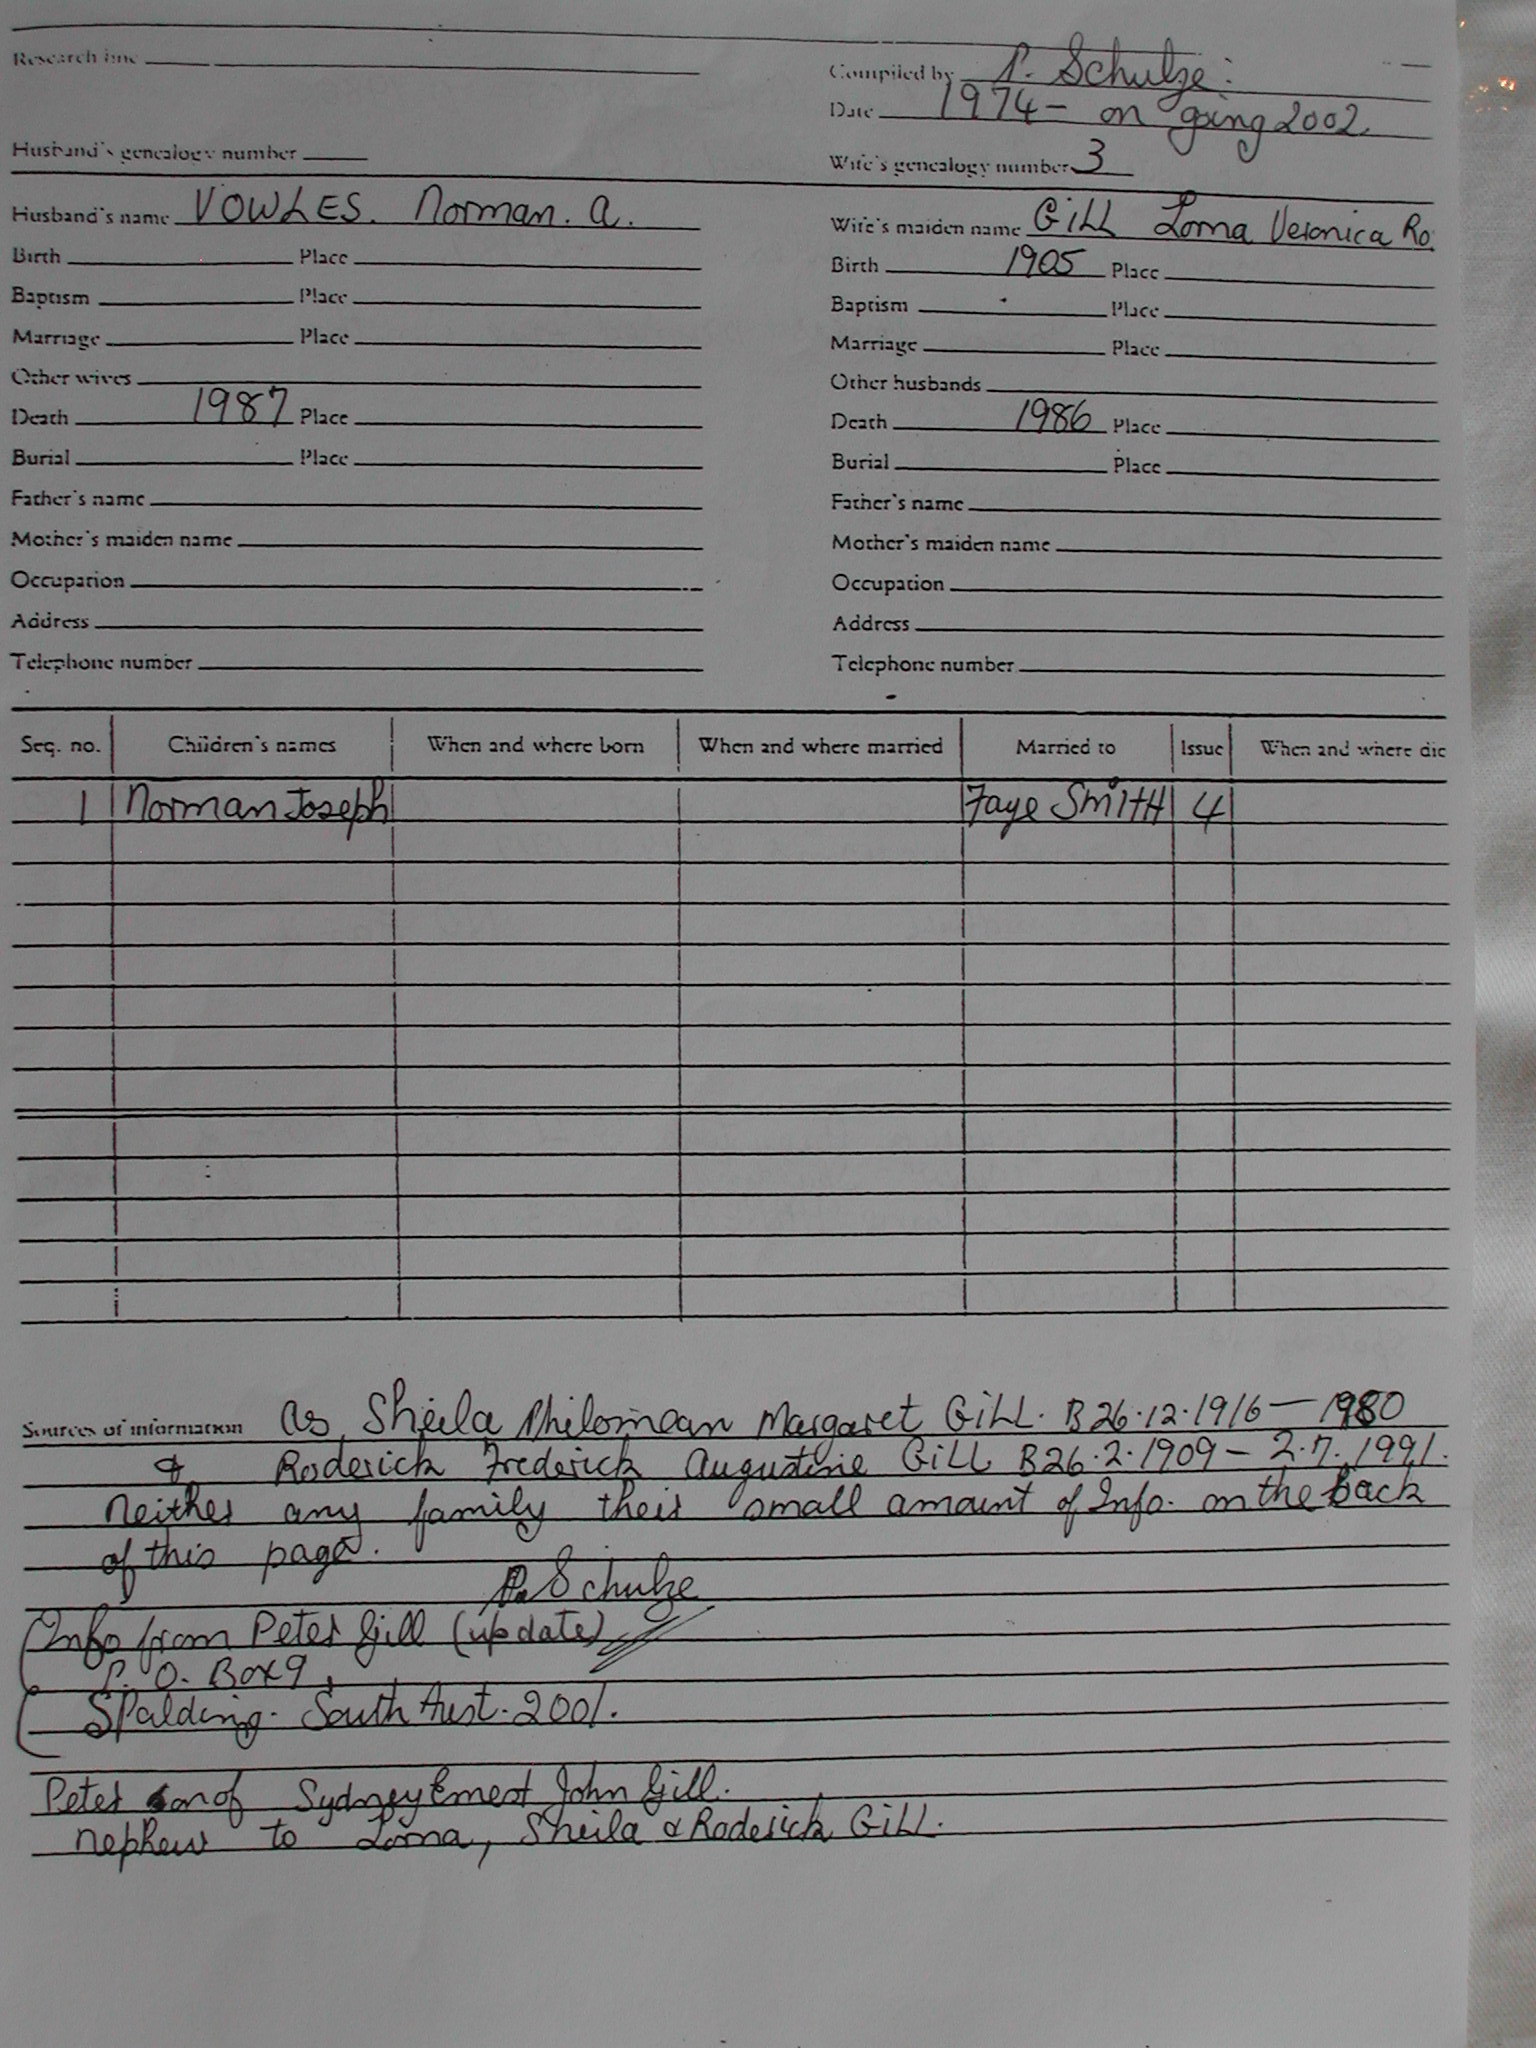 Research line
Compiled by P. Schulze:
Date 1974 - on going 2002.
Husband's genealogy number
Wife's genealogy number 3
Husband's name VOWLES. Norman. A.
Wife's maiden name GILL Lorna Veronica Ro.
Birth Place
Birth 1905 Place
Baptism Place
Baptism Place
Marriage Place
Marriage Place
Other wives
Other husbands
Death 1987 Place
Death 1986 Place
Burial Place
Burial Place
Father's name
Father's name
Mother's maiden name
Mother's maiden name
Occupation
Occupation
Address
Address
Telephone number
Telephone number
Seq. no. Children's names When and where born When and where married Married to Issue When and where die
1 Norman Joseph Faye SmiTH 4
Sources of information As Sheila Philomean Margaret GILL. B 26.12.1916 — 1980
& Roderick Frederick Augustine GILL B 26.2.1909 - 2.7.1991.
neither any family their small amount of Info. on the back
of this page.
P. Schulze
Info from Peter Gill (update)
P. O. Box 9,
Spalding. South Aust. 2001.
Peter son of Sydney Ernest John Gill.
nephew to Lorna, Sheila & Roderick GILL.